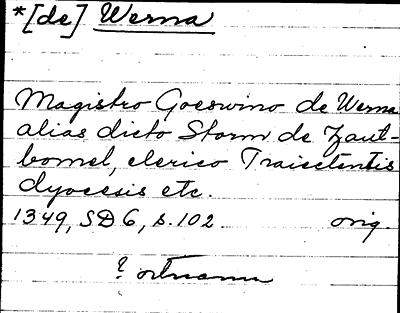 *[de] Werna
Magistro Goeswino de Werna
alias dicto Storm de Zaut-
bomel, clerico Traiectentis
dyocesis etc.
1349, SD 6, s. 102 orig.
? ortnamn